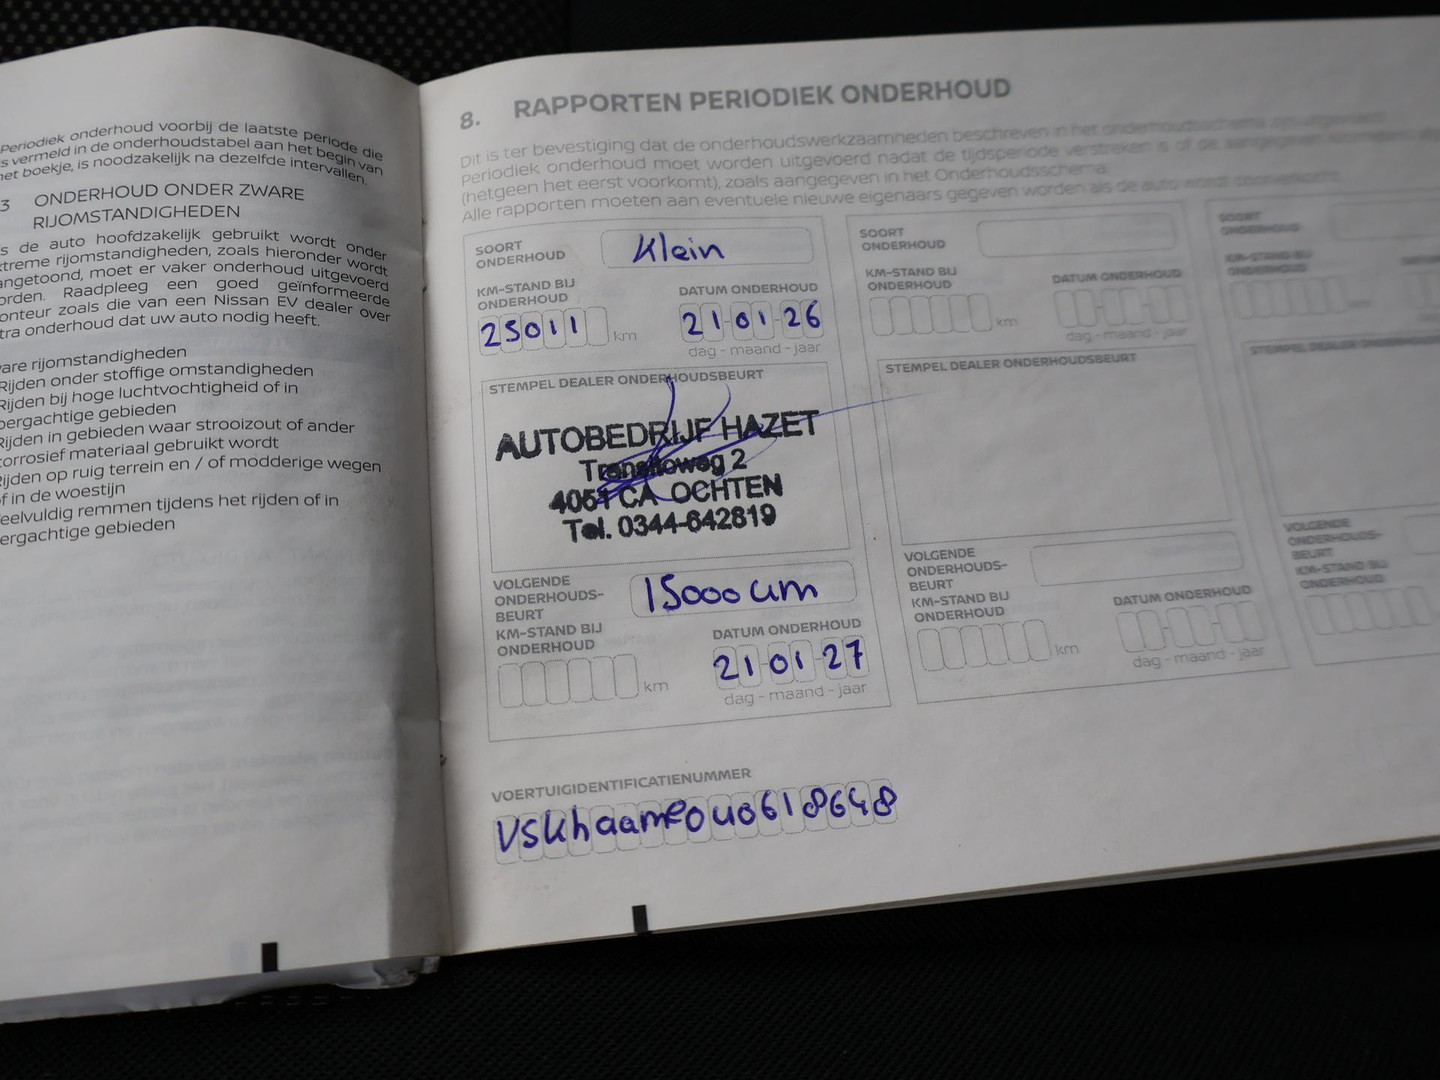 Periodiek onderhoud voorbij de laatste periode die
s vermeld in de onderhoudstabel aan het begin van
het boekje, is noodzakelijk na dezelfde intervallen.
3 ONDERHOUD ONDER ZWARE
RIJOMSTANDIGHEDEN
s de auto hoofdzakelijk gebruikt wordt onder
xtreme rijomstandigheden, zoals hieronder wordt
angetoond, moet er vaker onderhoud uitgevoerd
orden. Raadpleeg een goed geïnformeerde
onteur zoals die van een Nissan EV dealer over
tra onderhoud dat uw auto nodig heeft.
are rijomstandigheden
Rijden onder stoffige omstandigheden
Rijden bij hoge luchtvochtigheid of in
bergachtige gebieden
Rijden in gebieden waar strooizout of ander
corrosief materiaal gebruikt wordt
Rijden op ruig terrein en / of modderige wegen
of in de woestijn
eelvuldig remmen tijdens het rijden of in
ergachtige gebieden
8. RAPPORTEN PERIODIEK ONDERHOUD
Dit is ter bevestiging dat de onderhoudswerkzaamheden beschreven in het onderhoudsschema
Periodiek onderhoud moet worden uitgevoerd nadat de tijdsperiode verstreken is of de
(hetgeen het eerst voorkomt), zoals aangegeven in het Onderhoudsschema.
Alle rapporten moeten aan eventuele nieuwe eigenaars gegeven worden als de auto wordt
SOORT
ONDERHOUD
Klein
KM-STAND BIJ
ONDERHOUD
25011 km
DATUM ONDERHOUD
21-01-26
dag - maand - jaar
STEMPEL DEALER ONDERHOUDSBEURT
AUTOBEDRIJF HAZET
2
4051 CA OCHTEN
Tel. 0344-642819
VOLGENDE
ONDERHOUDS-
BEURT
15000 um
KM-STAND BIJ
ONDERHOUD
km
DATUM ONDERHOUD
21-01-27
dag - maand - jaar
SOORT
ONDERHOUD
KM-STAND BIJ
ONDERHOUD
km
DATUM ONDERHOUD
dag - maand - jaar
STEMPEL DEALER ONDERHOUDSBEURT
VOLGENDE
ONDERHOUDS-
BEURT
KM-STAND BIJ
ONDERHOUD
km
DATUM ONDERHOUD
dag - maand - jaar
SOORT
ONDERHOUD
KM-STAND BIJ
ONDERHOUD
km
STEMPEL DEALER ONDERHOUDSBEURT
VOLGENDE
ONDERHOUDS-
BEURT
KM-STAND BIJ
ONDERHOUD
VOERTUIGIDENTIFICATIENUMMER
VSKhaame0u0618648